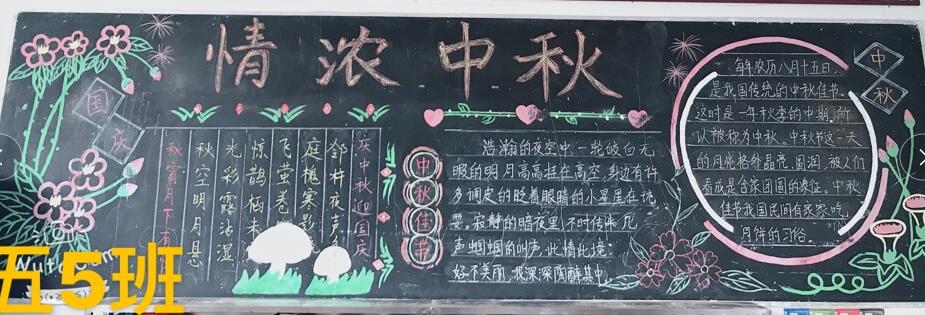 情浓中秋
国庆
中秋
庆中秋迎国庆
秋空明月悬
光彩露沾湿
惊鹊栖未
飞萤卷
庭槐寒影
邻杵夜克
秋宵月下有
中秋佳节
浩瀚的夜空中，一轮皎白无
暇的明月高高挂在高空，身边有许
多调皮的眨着眼睛的小星星在玩
耍。寂静的暗夜里，不时传来几
声蝈蝈的叫声，此情此境，
好不美丽，我深深陶醉其中。
每年农历八月十五日，
是我国传统的中秋佳节。
这时是一年秋季的中期，所
以被称为中秋。中秋节这一天
的月亮格外晶亮、圆润，被人们
看成是合家团圆的象征。中秋
佳节我国民间有家家吃
月饼的习俗。
五5班